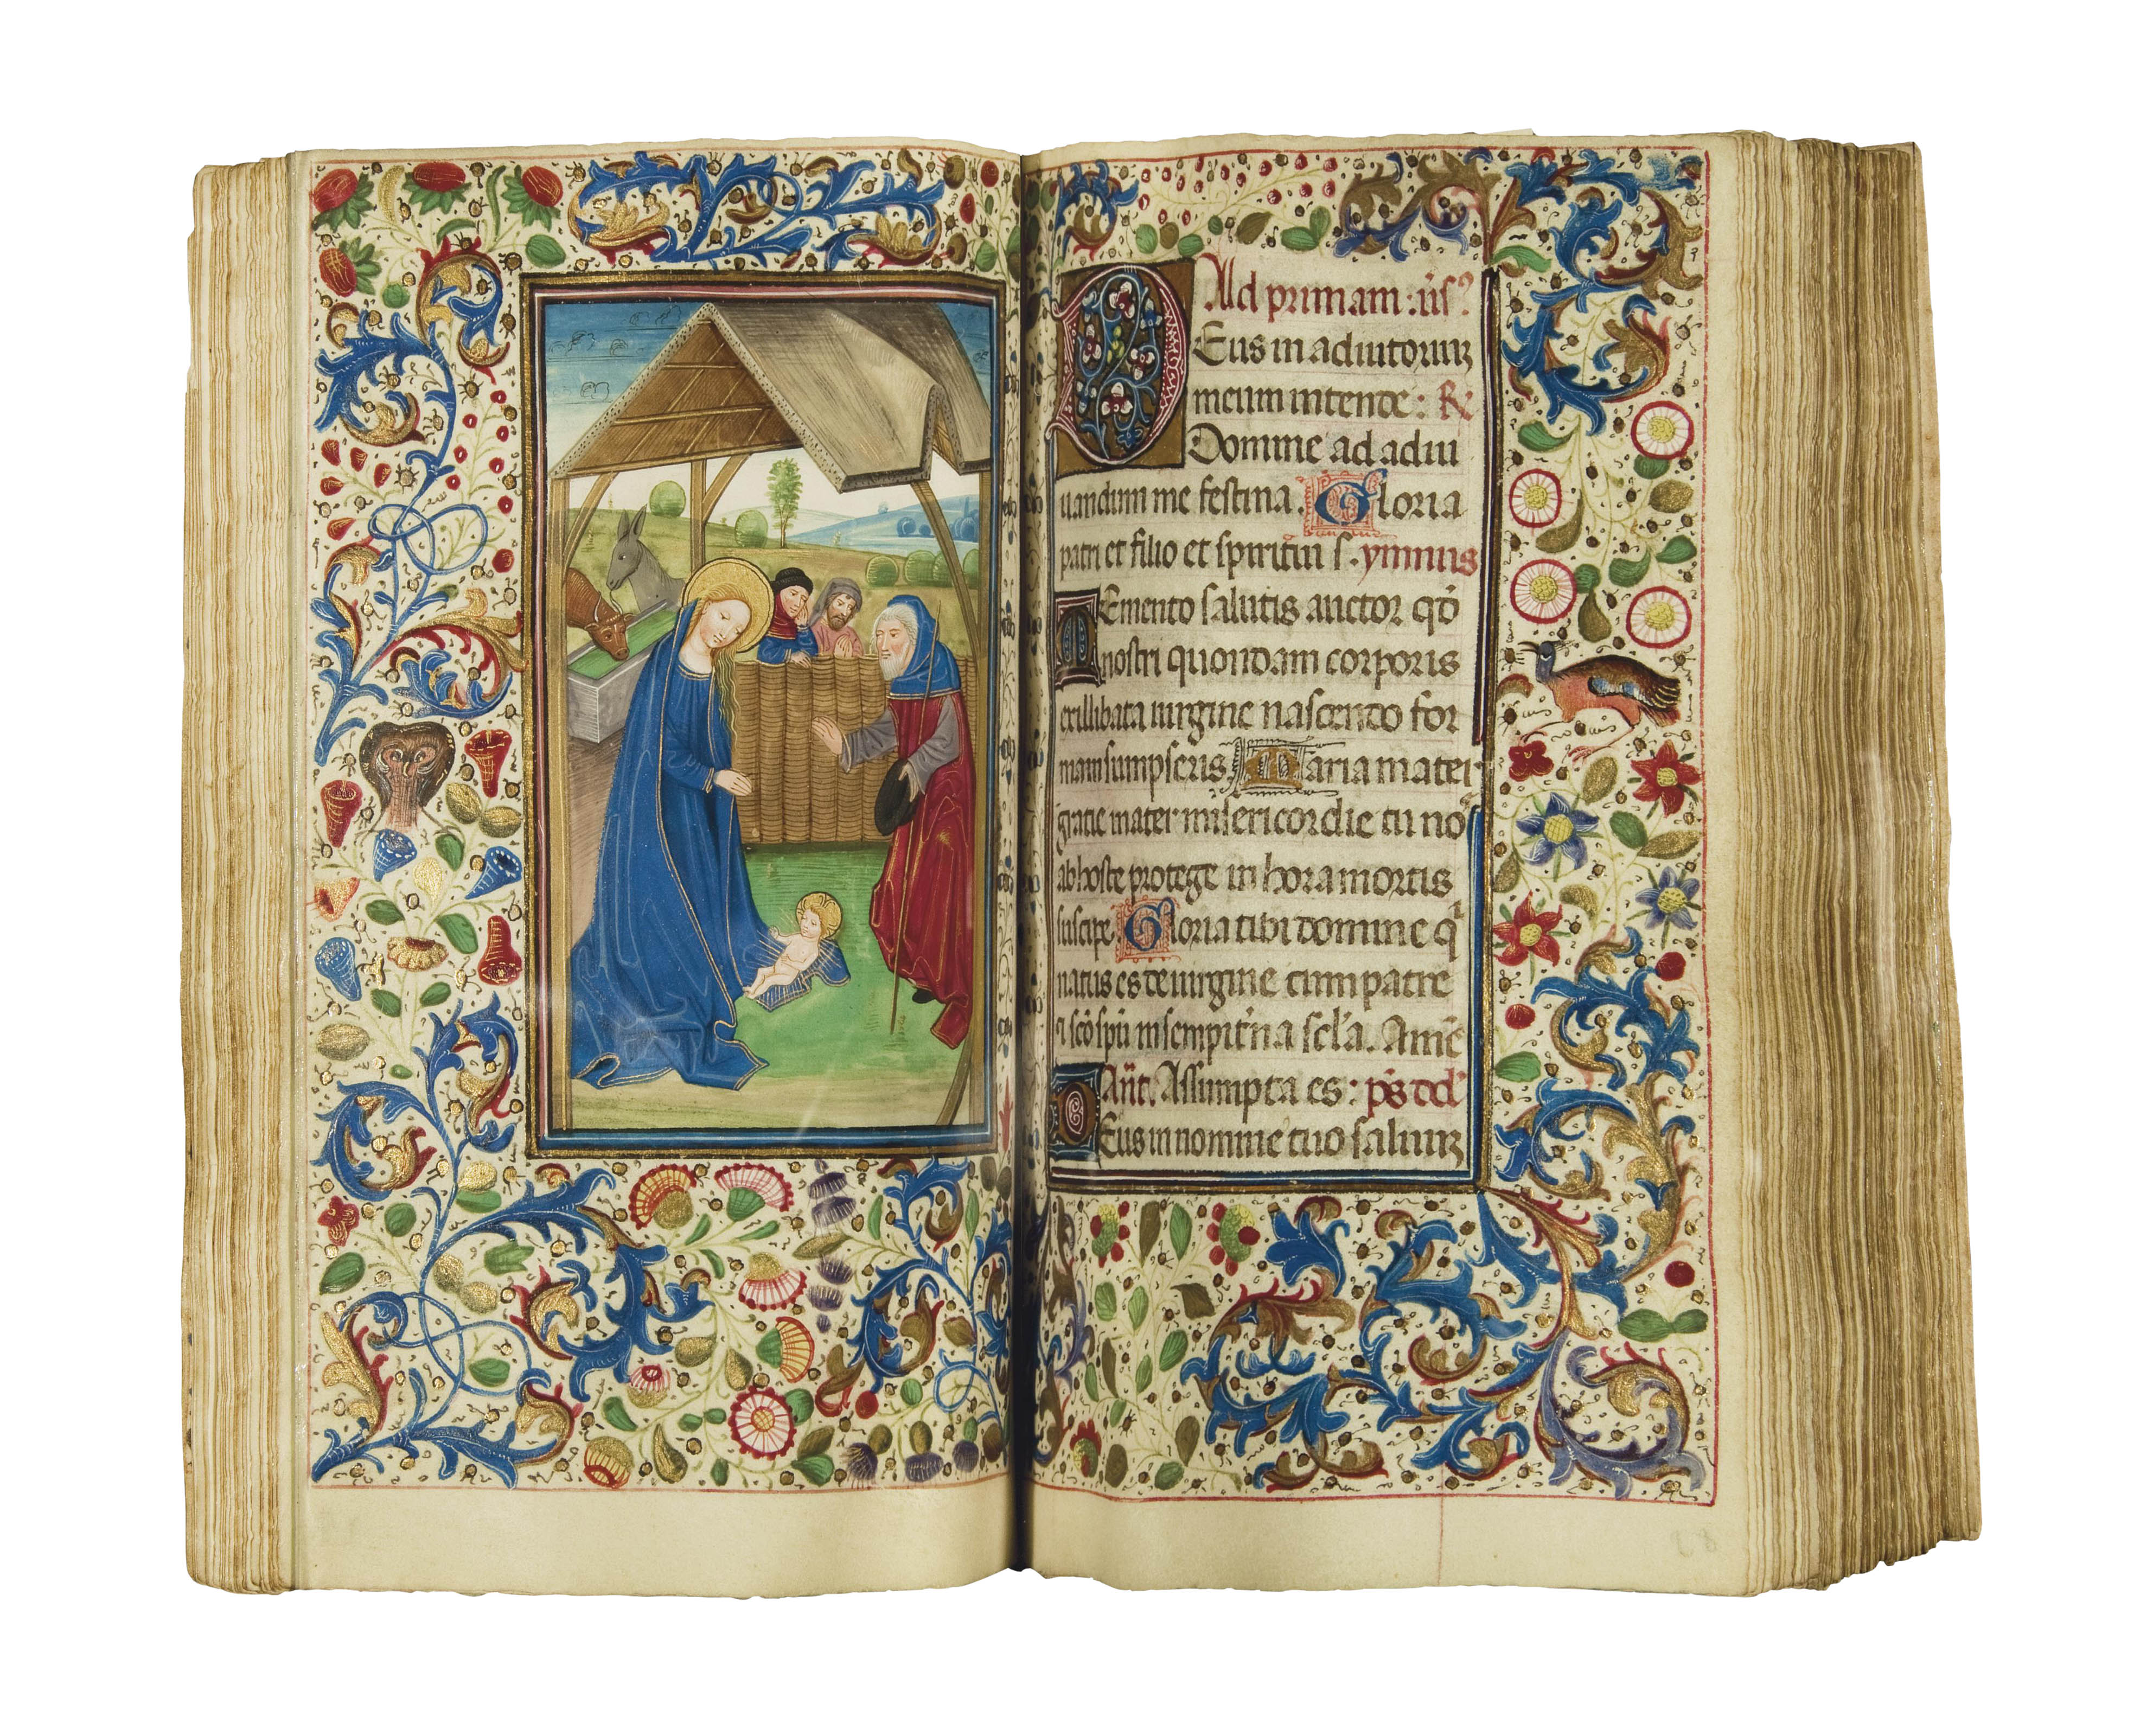 Ad primam: u̅s̅
Deus in adiutorium
meum intende: R
Domine ad adiu
uandum me festina. Gloria
patri et filio et spiritui s. ymnus
Memento salutis auctor qd̅
nostri quondam corporis
ex illibata uirgine nascendo for
mam sumpseris. Maria mater
gratie mater misericordie tu no
ab hoste protege in hora mortis
suscipe. Gloria tibi domine q
natus es de uirgine cum patre
sc̅o sp̅u in sempit̅na sc̅la. Ame̅
An̅t. Assumpta es: p̅s dd̅
Deus in nomine tuo saluum